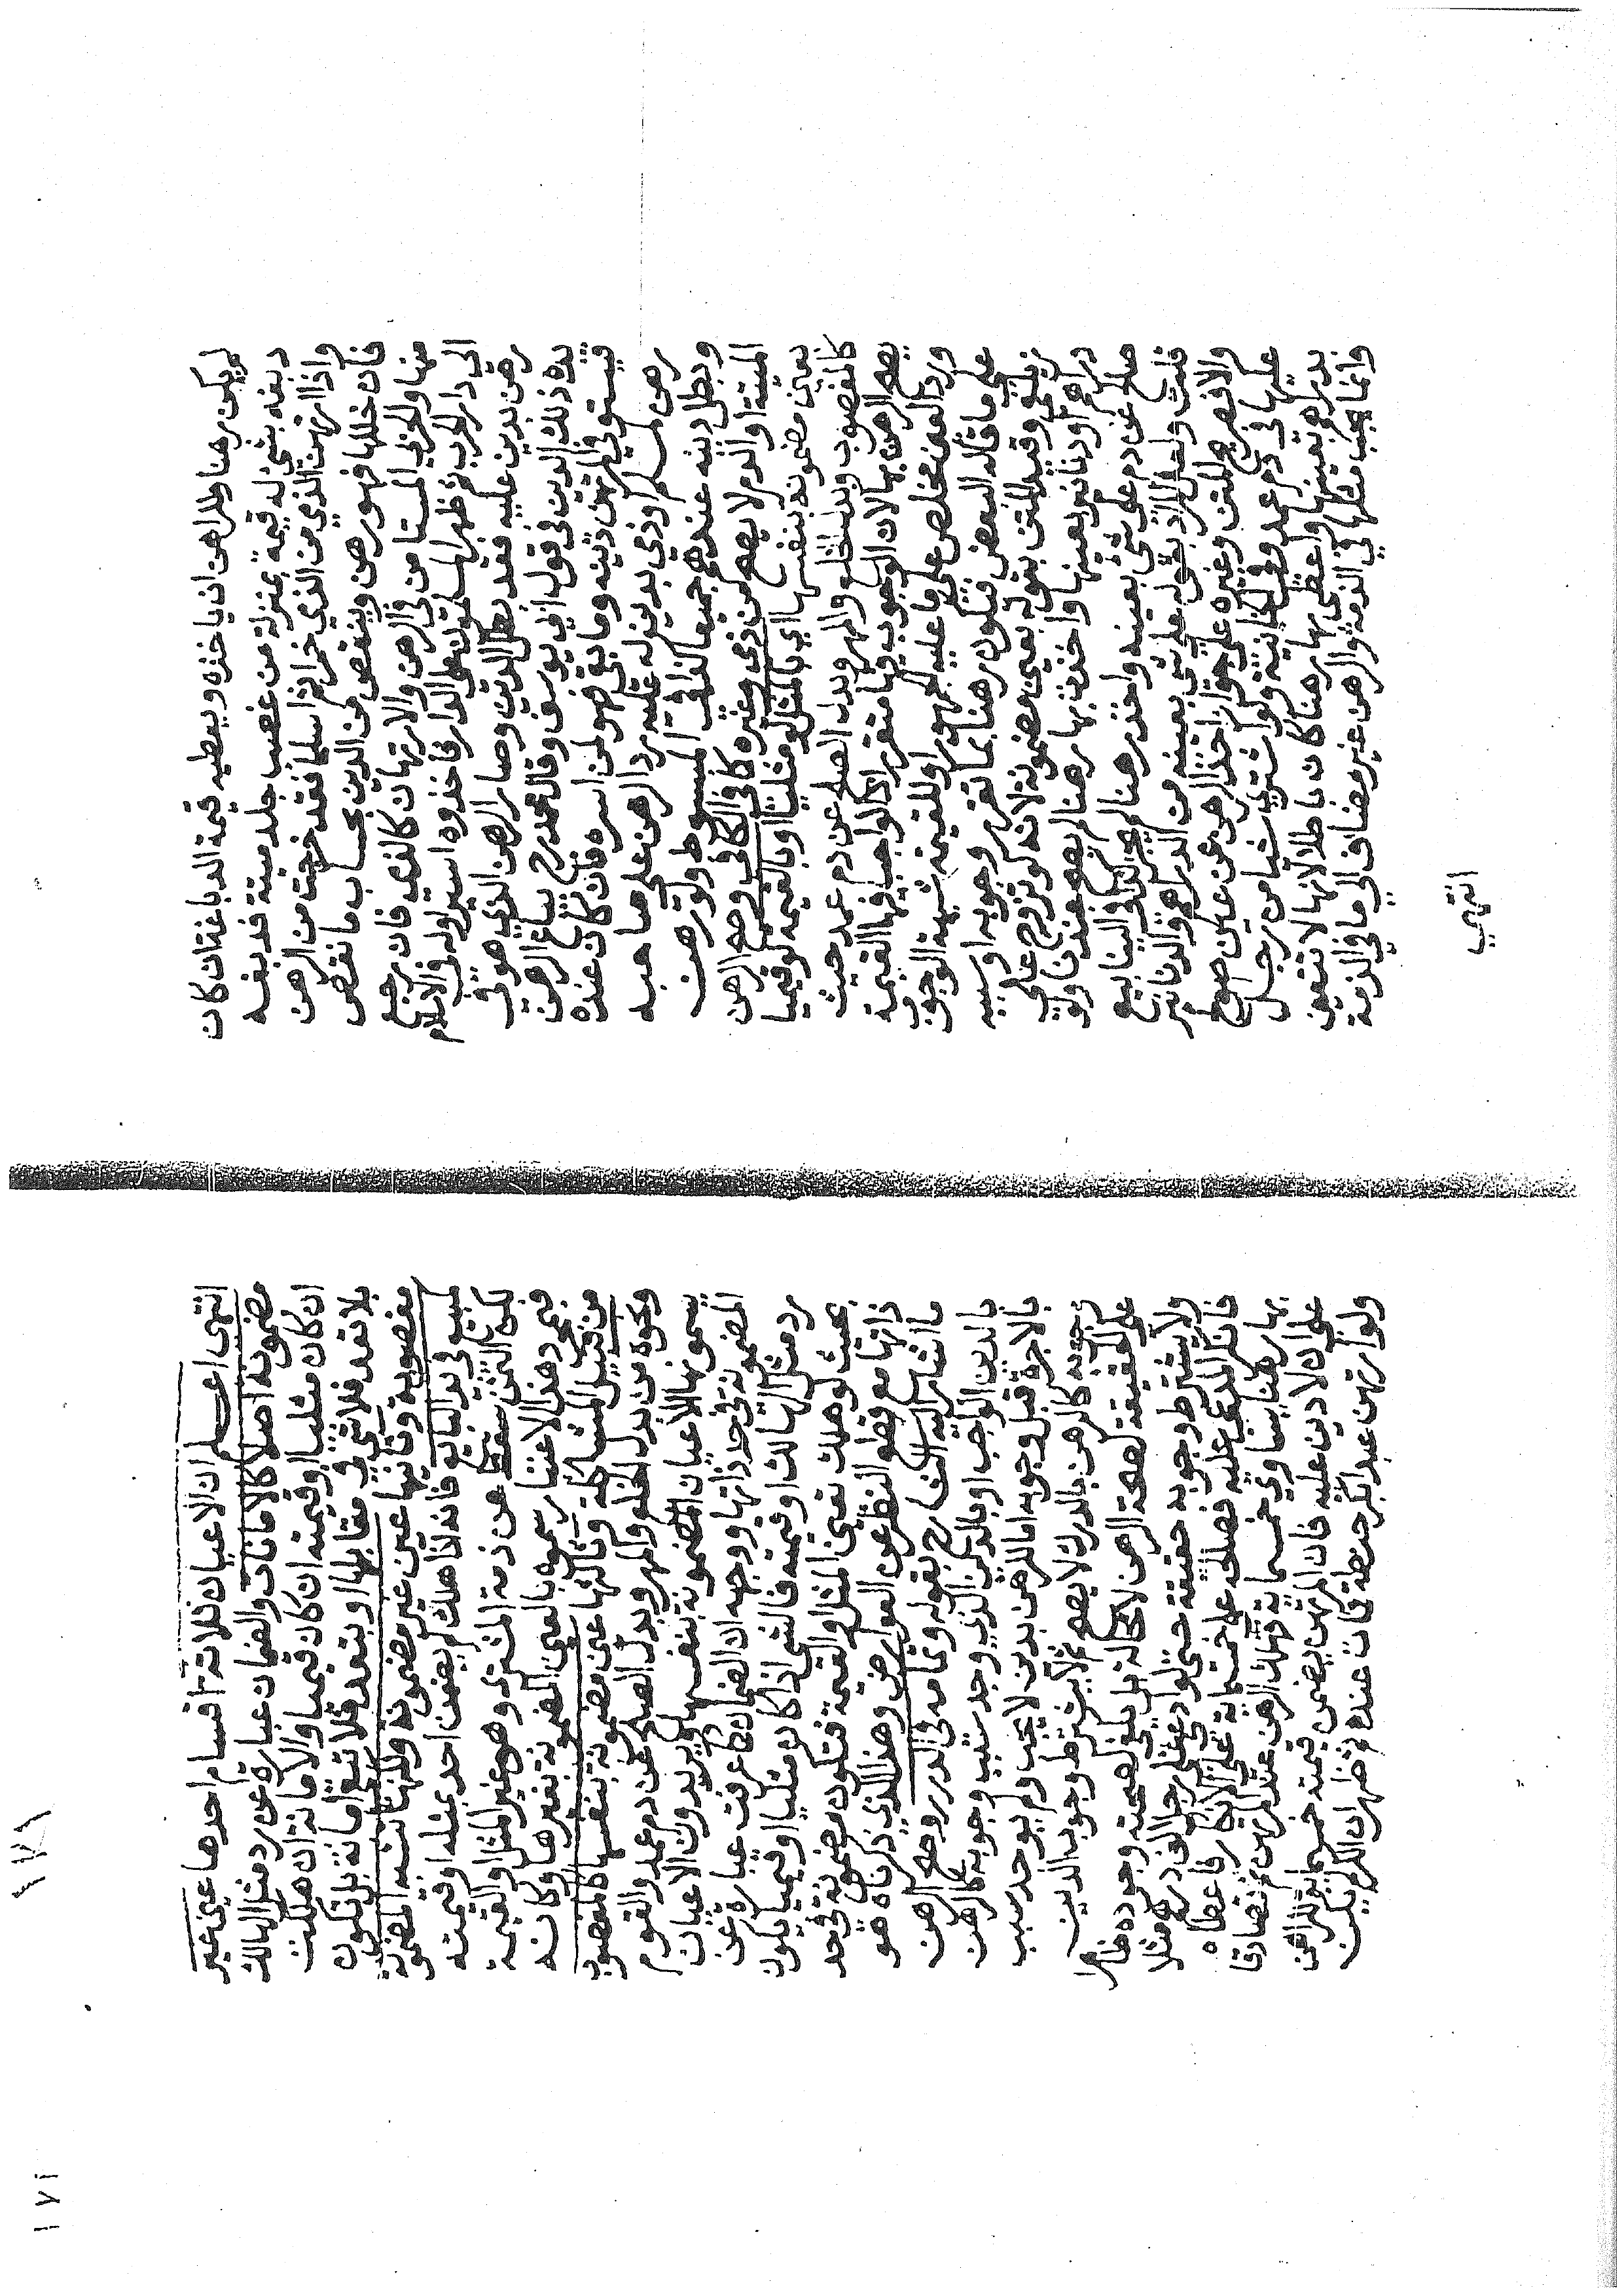 لم يكن رهنا فللراهن ان ياخذه ويعطيه قيمة الدباغة ان كان
دبغه بشئ له قيمة بمنزلة من غصب جلد ميتة فدبغه
واذا ارتهن الذمي من الذمي خمرا ثم اسلما فقد خرجت من الرهن
فان خللها فهو رهن وينقص من الدين بحساب ما نقص
منها والحربي المستامن في الرهن والارتهان كالذمي فان رجع
الى دار الحرب ثم ظهر المسلمون على الدار فاخذوه اسيرا وله في دار الاسلام
رهن بدين عليه فقد بطل الدين وصار الرهن الذي هو في
يده ذلك الدين في قول ابي يوسف وقال محمد رح يباع الرهن
فيستوفي المرتهن دينه وما بقي فهو لمن اسره فان كان عنده
رهن لمسلم او ذمي بدينه له عليه رد الرهن على صاحبه
وبطل دينه عندهم جميعا كذا في المبسوط ولو رهن
الميتة او الدم لا يصح من ذمي وغيره كما في الكافي وصح الرهن
بعين مضمونه بنفسها اي بالمثل لو مثليا او بالقيمة لو قيميا
كالمغصوب وبدل الخلع والمهر وبدل الصلح عن دم عمد حيث
يصح الرهن بها لان الوجوب فيها متقرر اذ الواجب فيها القيمة
ورد العين مخلص على ما عليه الجمهور او للقيمة شبهة الوجوب
على ما قاله البعض فيكون رهنا بما تقرر وجوبه او سببه
زيلعي وقيد المتن بقوله بعين مضمونة لانه لو تزوج على
دراهم او دنانير بعينها واخذ بها رهنا لم يصح عندنا ولو
صالح عن دم على شئ بعينه واخذ رهنا لم يجز كذا في الينابيع
قلت ولعل المراد بقوله على شئ بعينه من الدراهم والدنانير
والا فصريح المتن وغيره على جواز اخذ الرهن عن عين صولح
عليها في دم عمد وفي الخانية ولو اشترى شيا من رجل
بدراهم بعينها واعطى بها رهنا كان باطلا لانها لا تتعين
وانما يجب مثلها في الذمة والرهن غير مضاف الى ما في الذمة
انتهى
١٧١
انتهى اعلم ان الاعيان ثلاثة اقسام احدها عين غير
مضمونة اصلا كالامانات والضمان عبارة عن رد مثل الهالك
ان كان مثليا او قيمته ان كان قيميا والامانة ان هلكت
بلا تعد فلا شئ في مقابلها او بتعد فلا تبقى امانة بل تكون
مغصوبة وثانيها عين غير مضمونة ولكنها تشبه المضمونة
كمبيع في يد البايع فانه اذا هلك لم يضمن احد بمثله او قيمته
لكن الثمن يسقط عن ذمة المشتري وهو غير المثل او القيمة
فبهذا الاعتبار سموه بالعين المضمونة بغيرها وكانه
من قبيل المشاكلة وثالثها عين مضمونة بنفسها كالمغصوب
ونحوه من بدل الخلع والمهر وبدل الصلح عن دم عمد والقوم
يسمونها الاعيان المضمونة بنفسها ويريدون الاعيان
المضمونة في حد ذاتها ووجهه ان الضمان كما عرفت عبارة عن
رد مثل الهالك او قيمته فالشئ اذا كان مثليا او قيميا يكون
بحيث لو هلك تعين المثل او القيمة فتكون مضمونة في حد
ذاتها مع قطع النظر عن العوارض وهذا الذي ذكرناه هو
ما اشار اليه الشارح بقوله وتمامه في الدرر وصح الرهن
بالدين الواجب او بالدين الذي وجد سبب وجوبه كالرهن
بالاجرة قبل وجوبها اما الرهن بدين لا يجب ولم يوجد سبب
وجوبه كالرهن بالدرك لا يصح ثم لا يشترط وجوب الدين
على الحقيقة لصحة الرهن لا محالة بل يكفي لصحته وجوده ظاهرا
ولا يشترط وجوبه حقيقة حتى لو ادعى على رجل الف درهم مثلا
فانكر المدعى عليه فصالحه على خمسماية على الانكار فاعطاه
بها رهنا يساوي خمسماية فهلك الرهن عند المرتهن ثم تصادقا
على ان لا دين عليه فان المرتهن يضمن قيمته خمسماية للراهن
ولو ارتهن عبدا بكر حنطة فمات عنده ثم ظهر ان الكر لم يكن